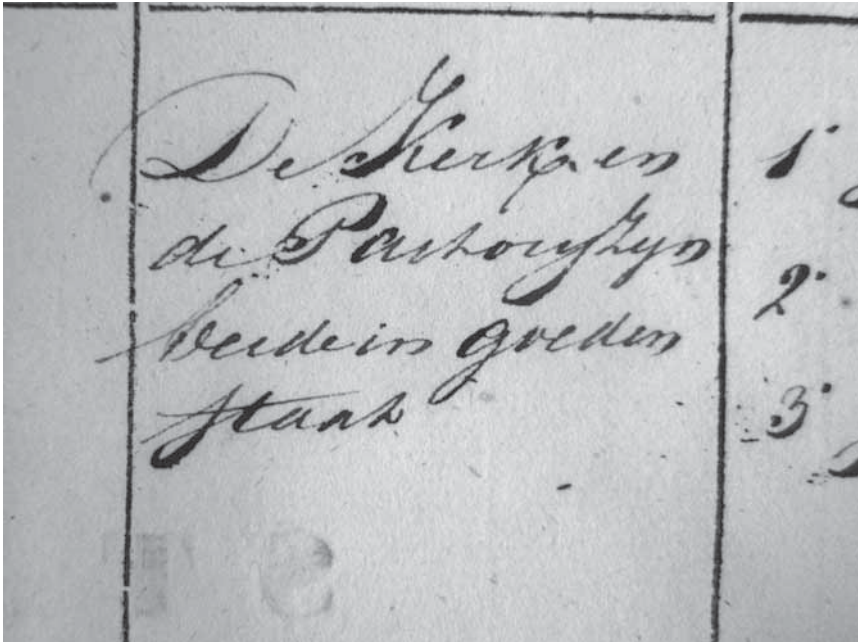 De Kerk en
de Pastory zyn
beide in goeden
staat
1°
2°
3°